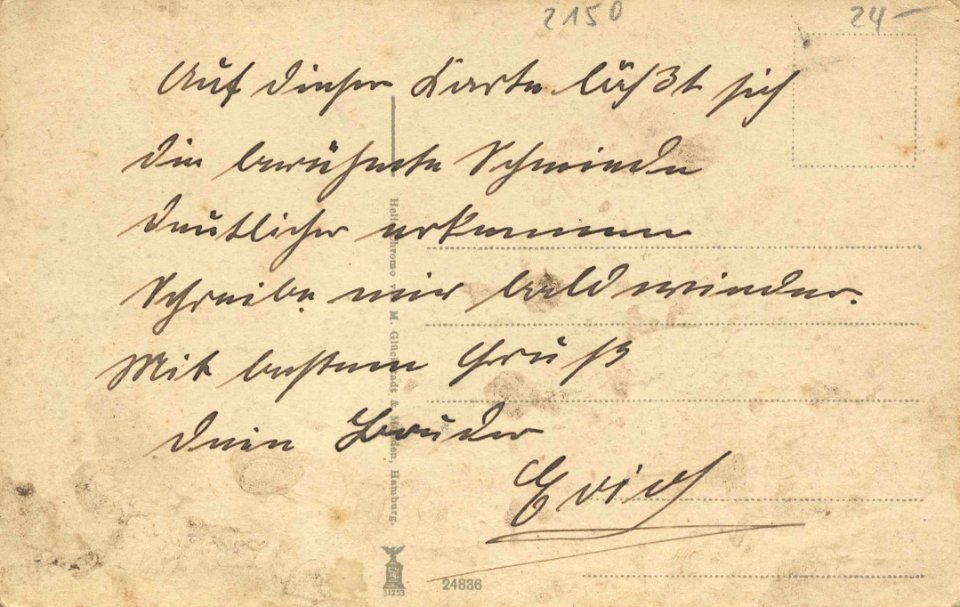 2150 24-
Auf dieser Karte läßt sich
die berühmte Schmiede
deutlicher erkennen
Schreibe mir bald wieder.
Mit bestem Gruß
dein Bruder
Erich
M. Glückstadt & Münden, Hamburg.
31253
24836